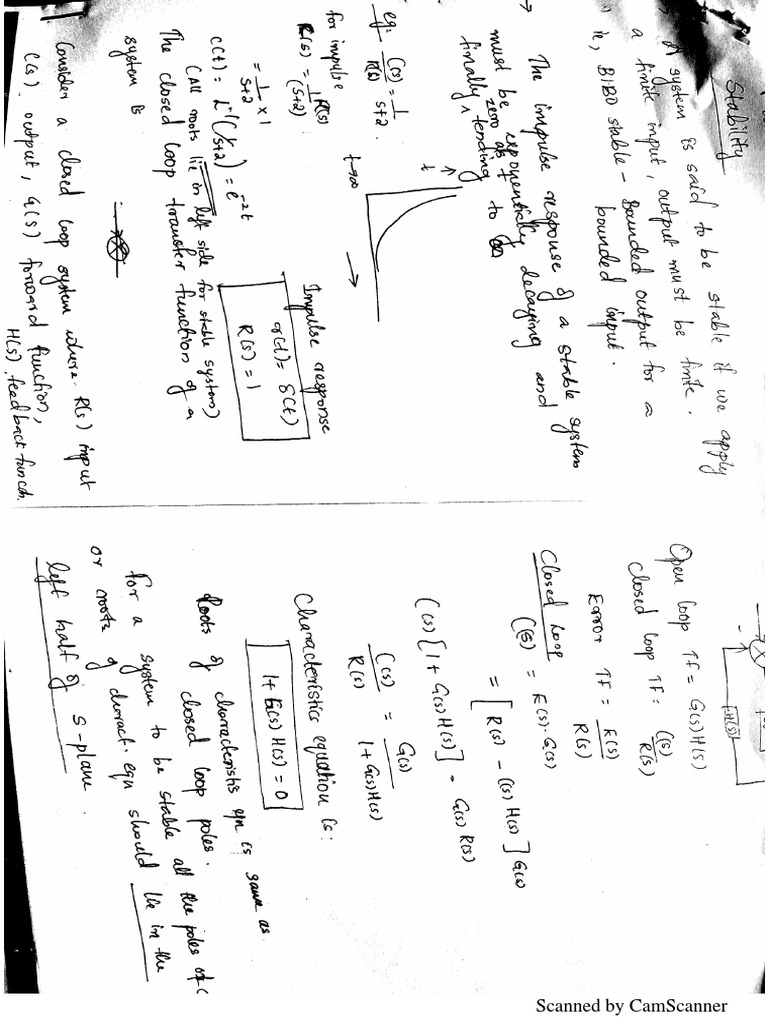 Stability
A system is said to be stable if we apply
a finite input, output must be finite.
ie, BIBO stable - Bounded output for a
bounded input.
→ The impulse response of a stable system
must be exponentially decaying and
finally tending to
zero as t
eg: C(s)/R(s) = 1/s+2.
for impulse
R(s) = 1/(s+2) R(s)
= 1/s+2 × 1
c(t) = L⁻¹(1/s+2) = e^-2t
t
t→∞
Impulse response
r(t) = δ(t)
R(s) = 1
(All roots lie in left side for stable system)
The closed loop transfer function of a
system is
Consider a closed loop system where R(s) input
C(s) output, G(s) forward function,
H(s) feedback
H(s)
Open loop TF = G(s)H(s)
closed loop TF = C(s)/R(s)
Error TF = E(s)/R(s)
Closed Loop
C(s) = E(s).G(s)
= [R(s) - C(s) H(s)] G(s)
C(s) [1 + G(s)H(s)] = G(s) R(s)
C(s)/R(s) = G(s)/1+G(s)H(s)
Characteristics equation is:
1+G(s) H(s) = 0
Roots of characteristis eqn is same as
closed loop poles.
For a system to be stable all the poles of
or roots of charact. eqn should lie in the
left half of S-plane.
Scanned by CamScanner